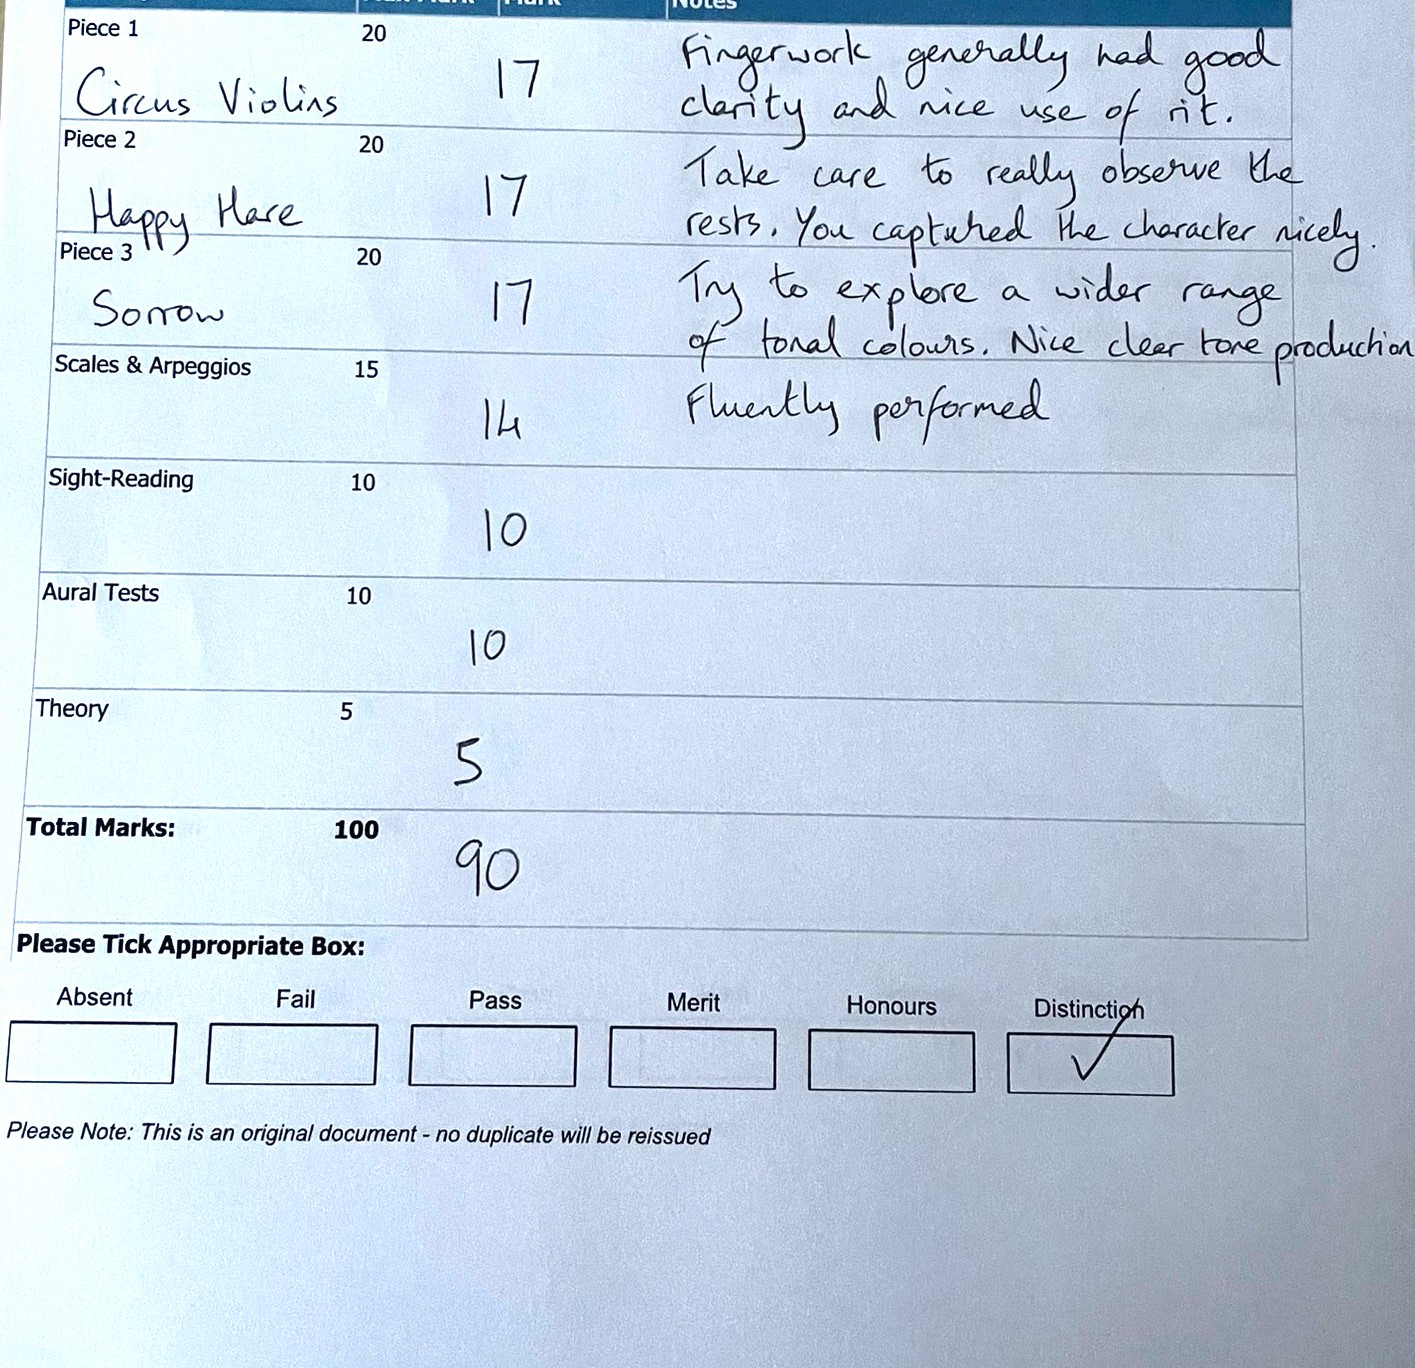 Mark Notes
Piece 1 20 17 Fingerwork generally had good
Circus Violins clarity and nice use of rit.
Piece 2 20 17 Take care to really observe the
Happy Hare rests. You captured the character nicely.
Piece 3 20 17 Try to explore a wider range
Sorrow of tonal colours. Nice clear tone production
Scales & Arpeggios 15 14 Fluently performed
Sight-Reading 10 10
Aural Tests 10 10
Theory 5 5
Total Marks: 100 90
Please Tick Appropriate Box:
Absent Fail Pass Merit Honours Distinction
✓
Please Note: This is an original document - no duplicate will be reissued